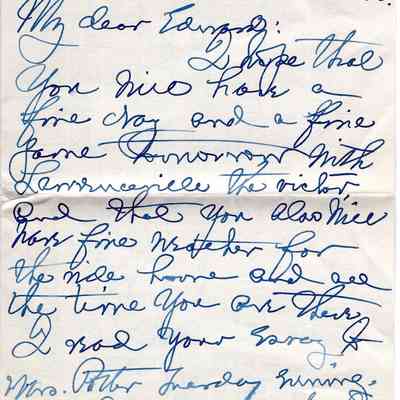 My dear Edward:
I hope that
You will have a
fine day and a fine
Game tomorrow with
Lawrenceville the victor,
and that you also will
have fine weather for
the ride home and all
the time you are there,
I read your Essay to
Mrs. Potter Tuesday Evening.